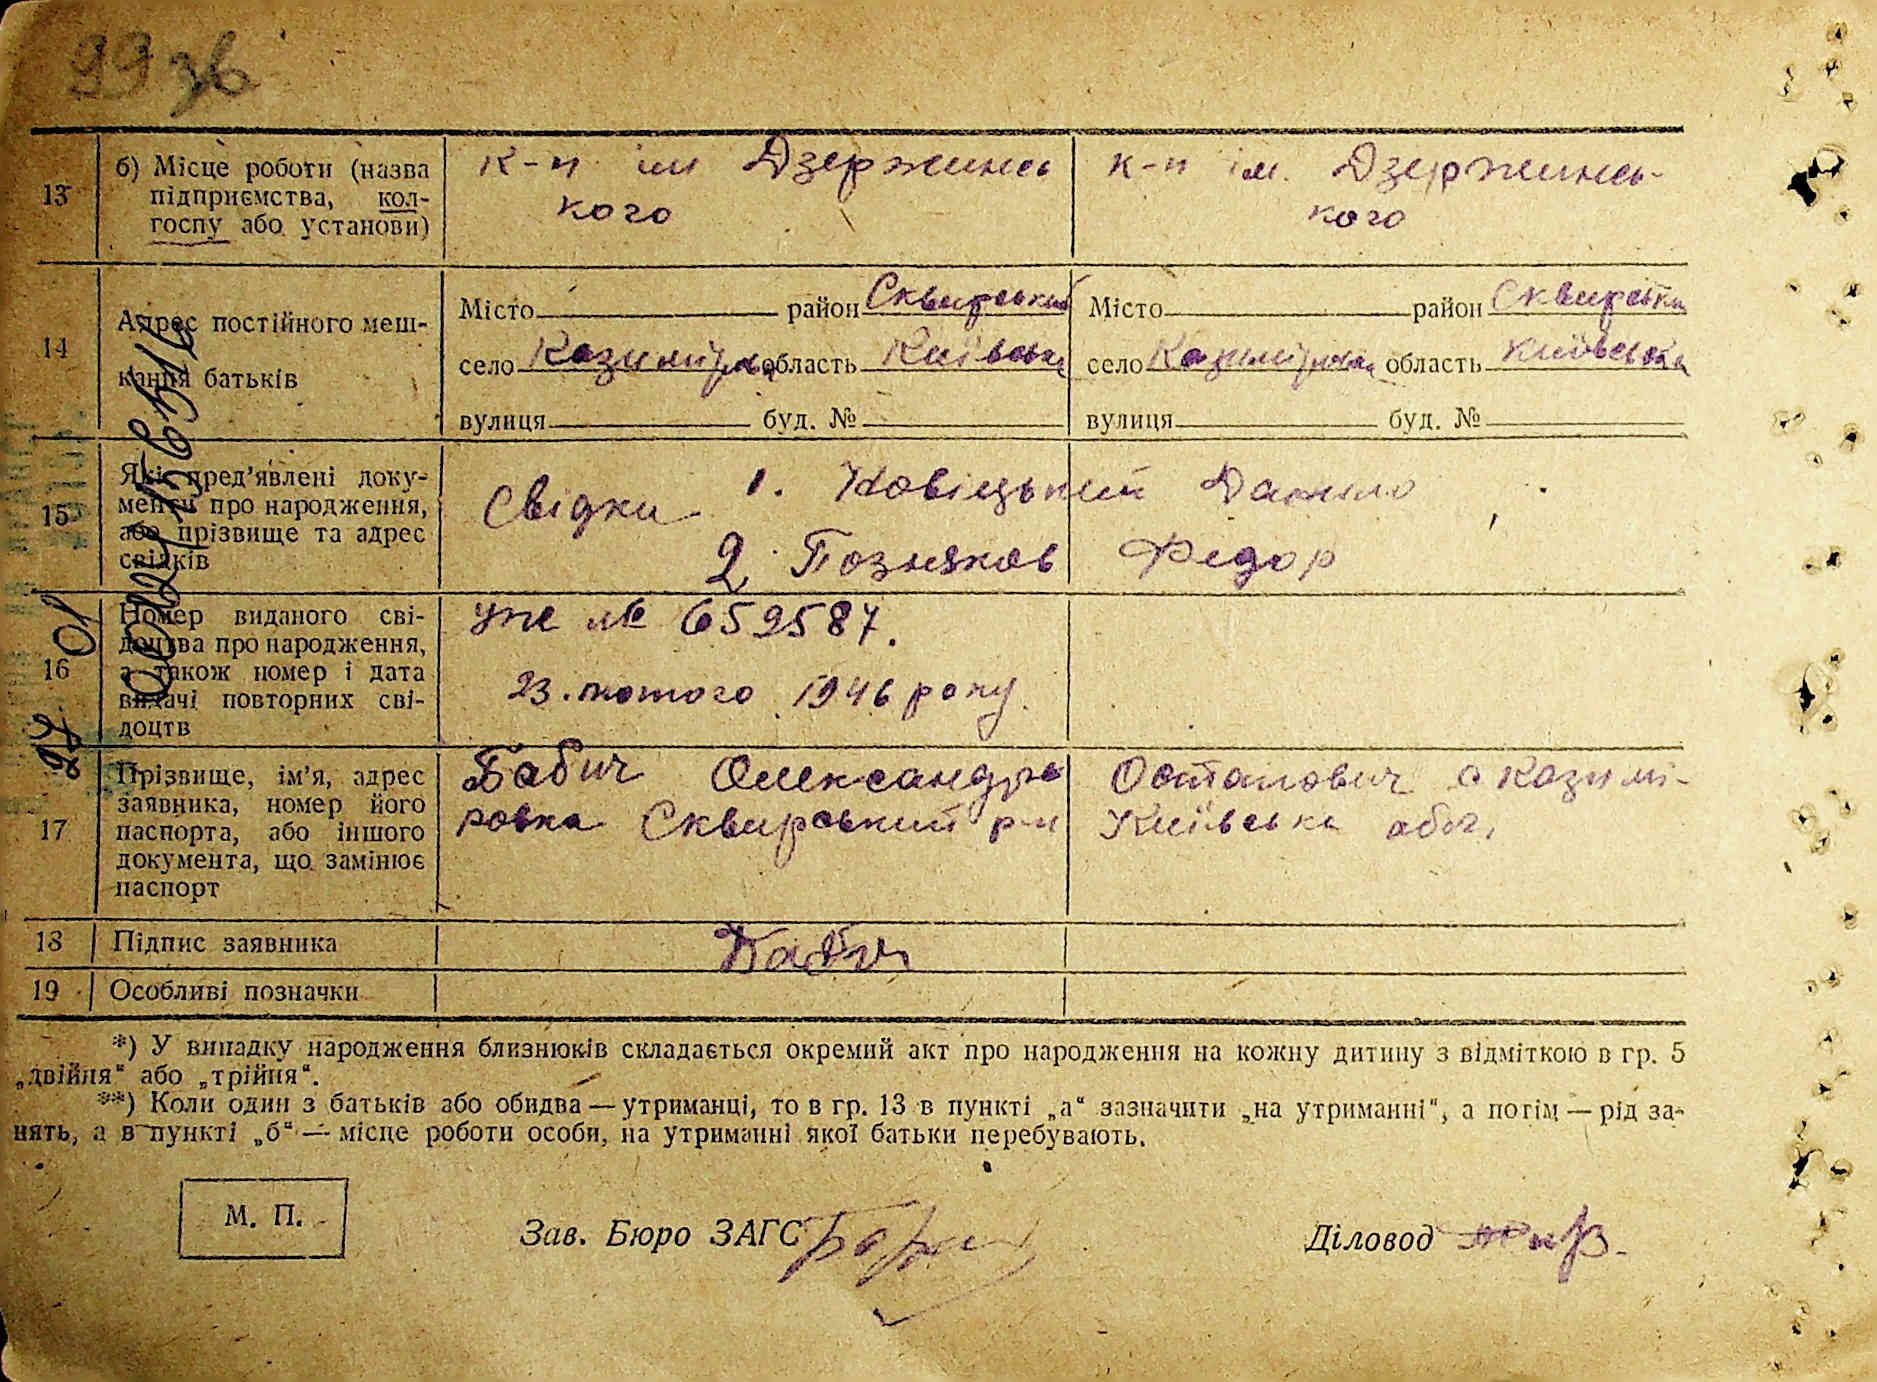 99 зв
13 б) Місце роботи (назва підприємства, кол-
госпу або установи)
к-п ім Дзержинсь
кого
к-п ім. Дзержинсь-
кого
14 Адрес постійного меш-
кання батьків
Місто район Сквирський
село область Київська
вулиця буд. №
Місто район Сквирськи
село область Київська
вулиця буд. №
15 Які пред’явлені доку-
менти про народження,
або прізвище та адрес
свідків
Свідки 1. Новіцький Данило
2. Позняков Федор
16 Номер виданого сві-
доцтва про народження,
а також номер і дата
видачі повторних сві-
доцтв
№ 659587.
23. лютого 1946 року.
17 Прізвище, ім’я, адрес
заявника, номер його
паспорта, або іншого
документа, що замінює
паспорт
Бабич Олександра Остапович с Козимі-
ровка Сквирський р-н Київська обл.
18 Підпис заявника
Бабич
19 Особливі позначки
*) У випадку народження близнюків складається окремий акт про народження на кожну дитину з відміткою в гр. 5
„двійня“ або „трійня“.
**) Коли один з батьків або обидва — утриманці, то в гр. 13 в пункті „а“ зазначити „на утриманні“, а потім — рід за-
нять, а в пункті „б“ — місце роботи особи, на утриманні якої батьки перебувають.
М. П.
Зав. Бюро ЗАГС
Діловод